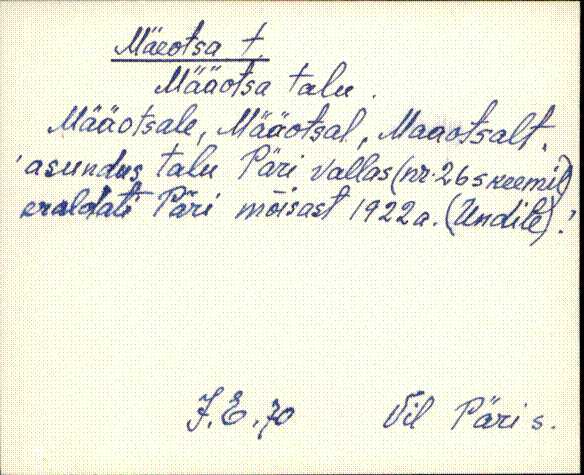 Mäeotsa t.
Määotsa talu.
Määotsale, Määotsal, Määotsalt.
'asundus talu Päri vallas (nr. 26 skeemil)
eraldati Päri mõisast 1922 a. (Undile).'
J. E. 70 Vil Päri s.